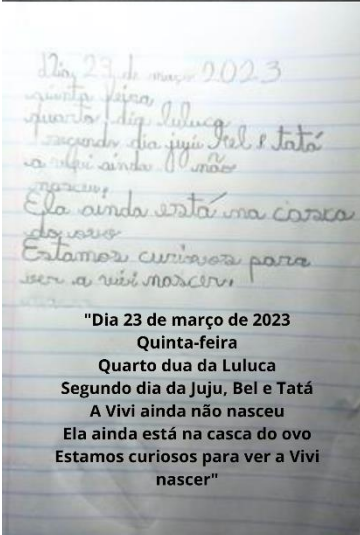 Dia, 23 de março 2023
quinta feira
quarto diq luluca
segundo dia juju Bel e tatá
a vivi ainda não
nasceu,
Ela ainda está na casca
do ovo
Estamos curiosos para
ver a vivi nascer.
"Dia 23 de março de 2023
Quinta-feira
Quarto dua da Luluca
Segundo dia da Juju, Bel e Tatá
A Vivi ainda não nasceu
Ela ainda está na casca do ovo
Estamos curiosos para ver a Vivi
nascer"